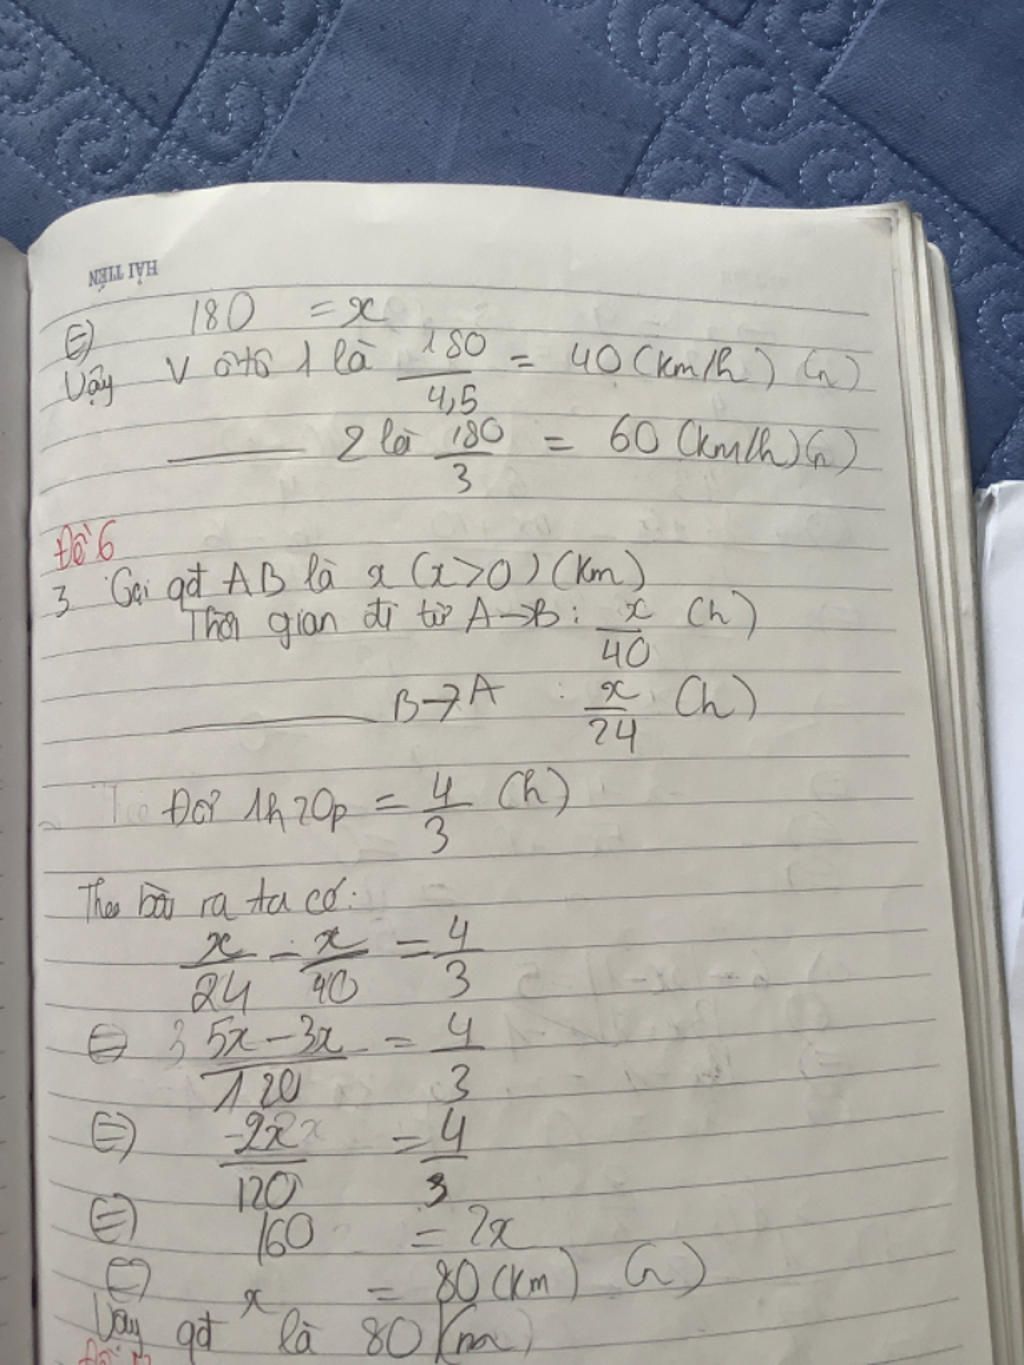 HẢI TIẾN
⇔ 180 = x
Vậy V ôtô 1 là 180/4,5 = 40 (km/h) (n)
——— 2 là 180/3 = 60 (km/h) (n)
Đề 6
3 Gọi qđ AB là x (x>0) (km)
Thời gian đi từ A→B: x/40 (h)
——— B→A : x/24 (h)
Đổi 1h20p = 4/3 (h)
Theo bài ra ta có:
x/24 - x/40 = 4/3
⇔ (5x - 3x)/120 = 4/3
⇔ 2x/120 = 4/3
⇔ 160 = 2x
⇔ x = 80 (km) (n)
Vậy qđ là 80 (km)